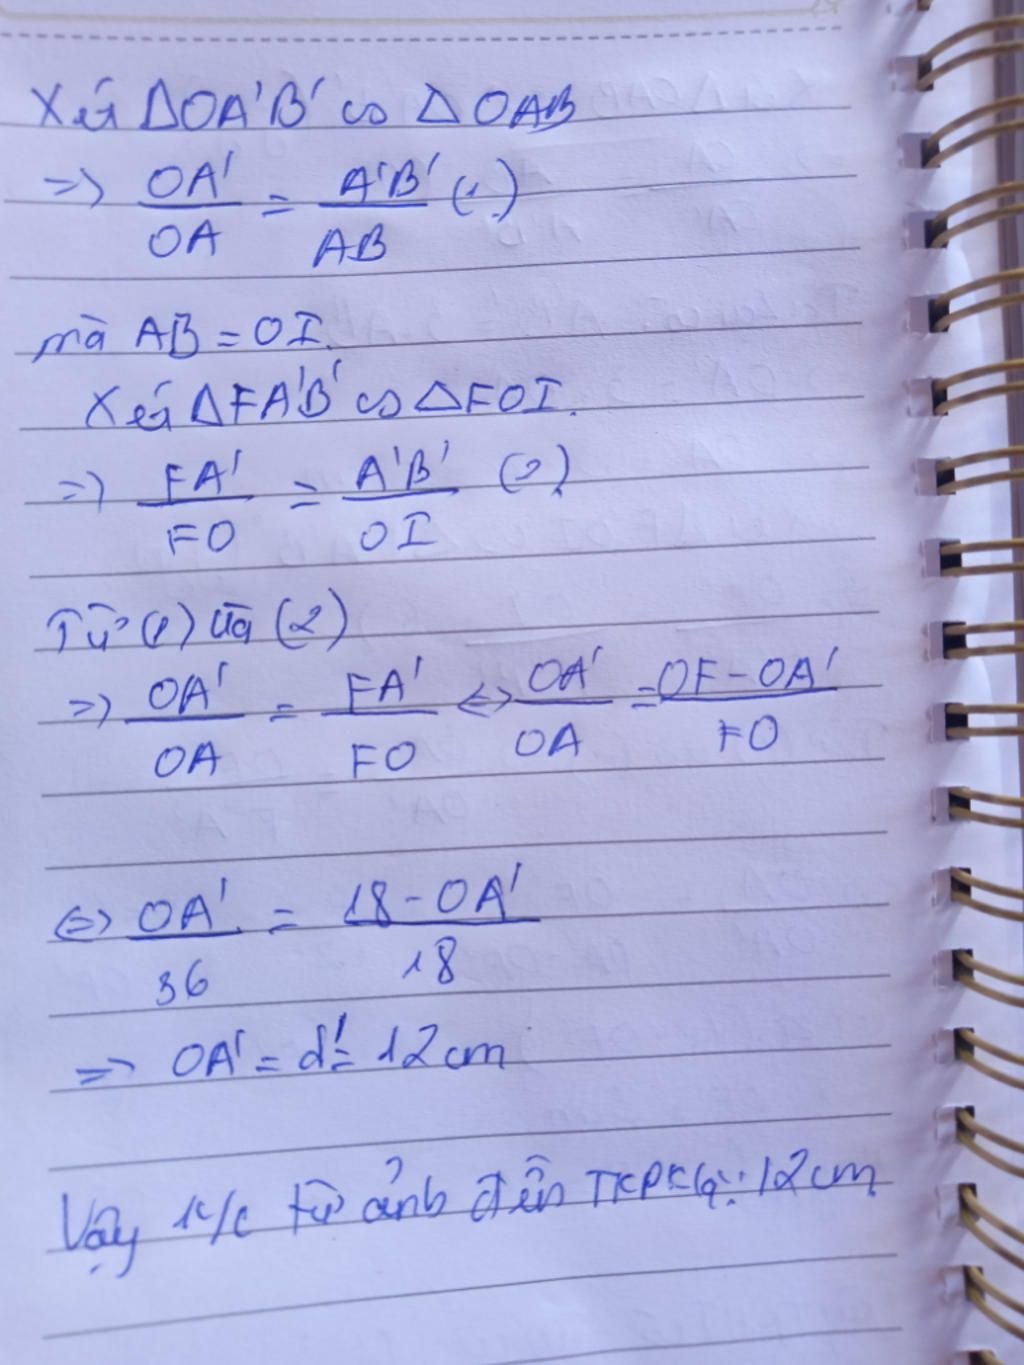 Xét ΔOA'B' ∽ ΔOAB
=> OA'/OA = A'B'/AB (1)
mà AB = OI.
Xét ΔFA'B' ∽ ΔFOI.
=> FA'/FO = A'B'/OI (2)
Từ (1) và (2)
=> OA'/OA = FA'/FO <=> OA'/OA = OF - OA'/FO
<=> OA'/36 = 18 - OA'/18
=> OA' = d' = 12 cm
Vậy k/c từ ảnh đến TKPK là: 12 cm